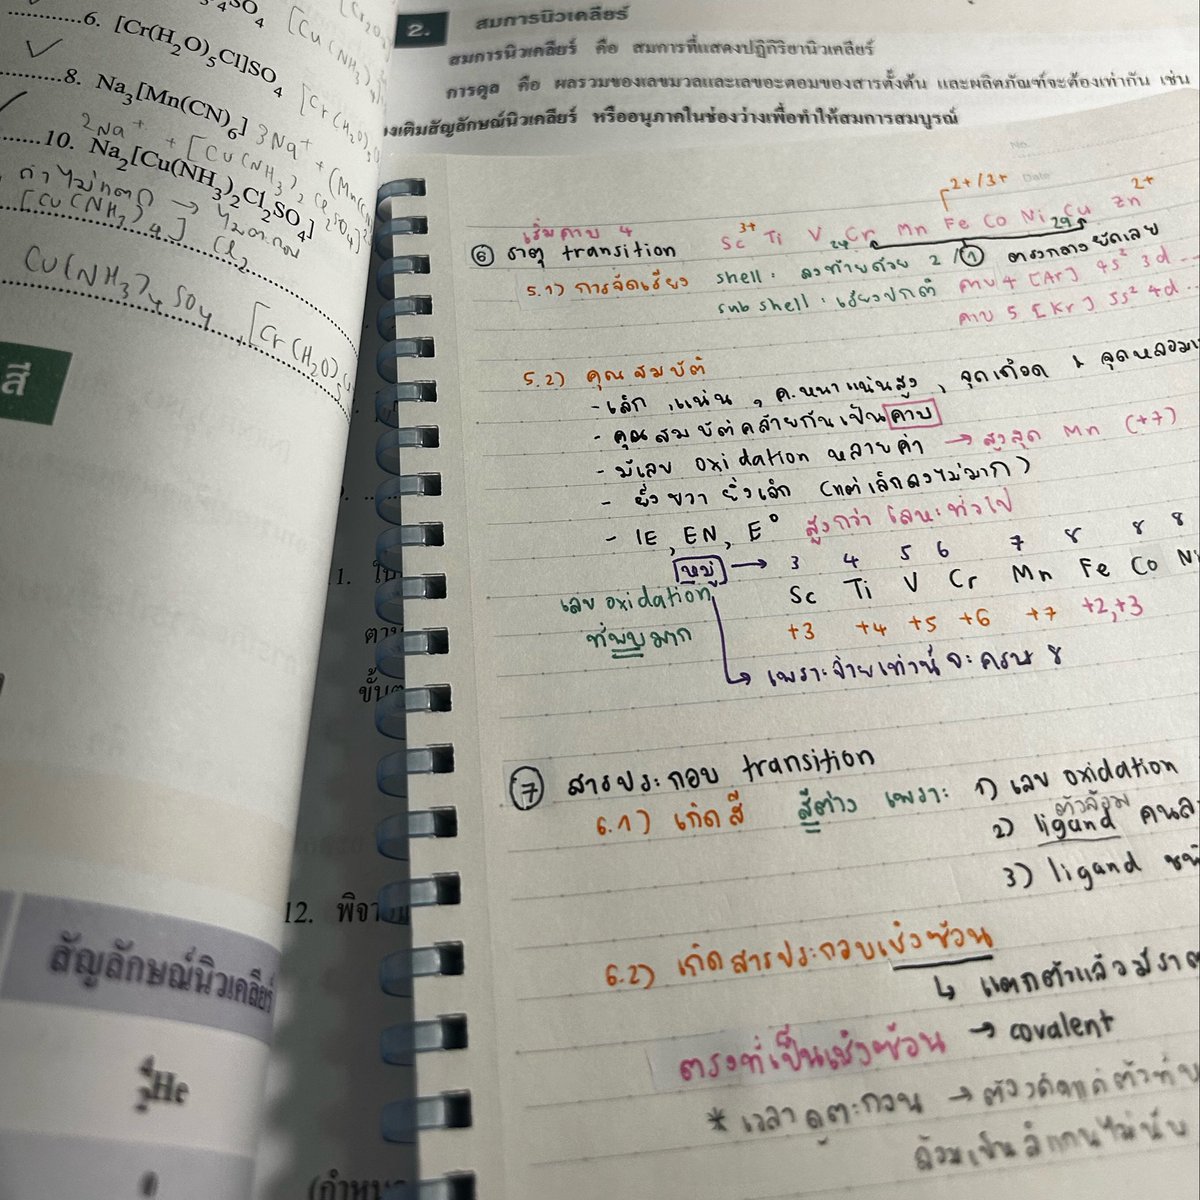 6. [Cr(H₂O)₅Cl]SO₄
8. Na₃[Mn(CN)₆] 3Na⁺ +
2Na⁺ + [Cu(NH₃)₂Cl₂SO₄]²
10. Na₂[Cu(NH₃)₂Cl₂SO₄]
ถ้าไม่แตก → ไม่ตะกอน
[Cu(NH₃)₄]Cl₂
Cu(NH₃)₄SO₄ [Cr(H₂O)₅
สี
สัญลักษณ์นิวเคลียร์
⁴₂He
2. สมการนิวเคลียร์
สมการนิวเคลียร์ คือ สมการที่แสดงปฏิกิริยานิวเคลียร์
การดุล คือ ผลรวมของเลขมวลและเลขอะตอมของสารตั้งต้น และผลิตภัณฑ์จะต้องเท่ากัน เช่น
งเติมสัญลักษณ์นิวเคลียร์ หรืออนุภาคในช่องว่างเพื่อทำให้สมการสมบูรณ์
1.
12. พิจา
(กำหน
No.
Date
2+/3+
เริ่มคาบ 4 3+ 2+
⑥ ธาตุ transition Sc Ti V 24Cr Mn Fe Co Ni 29Cu Zn
5.1) การจัดเรียง shell : ลงท้ายด้วย 2 / ① ตรงกลางยัดเลย
subshell : เรียงปกติ คาบ 4 [Ar] 4s² 3d ...
คาบ 5 [Kr] 5s² 4d ...
5.2) คุณสมบัติ
- เล็ก , แน่น , ค.หนาแน่นสูง , จุดเดือด & จุดหลอมเ
- คุณสมบัติคล้ายกันเป็นคาบ
- มีเลข oxidation หลายค่า → สูงสุด Mn (+7)
- ยิ่งขวา ยิ่งเล็ก (แต่เล็กลงไม่มาก)
- IE , EN , E° สูงกว่าโลหะทั่วไป
หมู่ → 3 4 5 6 7 8 8 8
เลข oxidation Sc Ti V Cr Mn Fe Co Ni
ที่พบมาก +3 +4 +5 +6 +7 +2,+3
↳ เพราะจ่ายเท่านี้จะครบ 8
⑦ สารประกอบ transition
6.1) เกิดสี สีต่าง เพราะ 1) เลข oxidation
ตัวล้อม
2) ligand คนล
3) ligand
6.2) เกิดสารประกอบเชิงซ้อน
↳ แตกตัวแล้วมีธาต
ตรงที่เป็นเชิงซ้อน → covalent
* เวลาดูตะกอน →